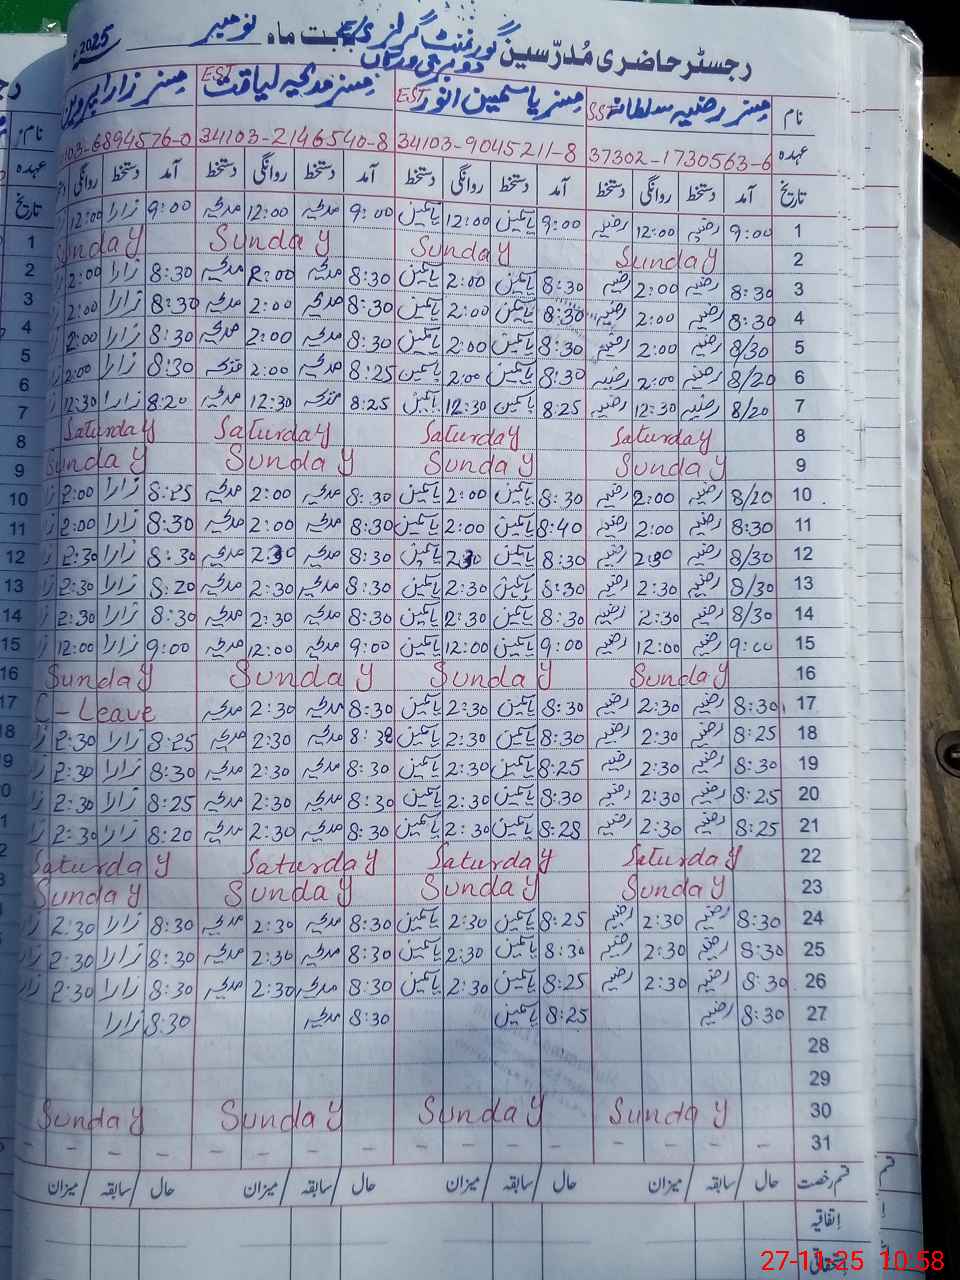 رجسٹر حاضری مُدرّسین گورنمنٹ گرلز بابت ماہ نومبر 2025
نام مسز رضیہ سلطانہ SST مسز یاسمین انور EST مسز مدیحہ لیاقت EST مسز زارا پروین
عہدہ 37302-1730563-6 34103-9045211-8 34103-2146540-8 103-6894576-0
تاریخ آمد دستخط روانگی دستخط آمد دستخط روانگی دستخط آمد دستخط روانگی دستخط آمد دستخط روانگی
1 9:00 رضیہ 12:00 رضیہ 9:00 یاسمین 12:00 یاسمین 9:00 مدیحہ 12:00 مدیحہ 9:00 زارا 12:00
2 Sunday Sunday Sunday Sunday
3 8:30 رضیہ 2:00 رضیہ 8:30 یاسمین 2:00 یاسمین 8:30 مدیحہ 2:00 مدیحہ 8:30 زارا 2:00
4 8:30 رضیہ 2:00 رضیہ 8:30 یاسمین 2:00 یاسمین 8:30 مدیحہ 2:00 مدیحہ 8:30 زارا 2:00
5 8/30 رضیہ 2:00 رضیہ 8:30 یاسمین 2:00 یاسمین 8:30 مدیحہ 2:00 مدیحہ 8:30 زارا 2:00
6 8/20 رضیہ 2:00 رضیہ 8:30 یاسمین 2:00 یاسمین 8:25 مدیحہ 2:00 مدیحہ 8:30 زارا 2:00
7 8/20 رضیہ 12:30 رضیہ 8:25 یاسمین 12:30 یاسمین 8:25 مدیحہ 12:30 مدیحہ 8:20 زارا 12:30
8 Saturday Saturday Saturday Saturday
9 Sunday Sunday Sunday Sunday
10 8/20 رضیہ 2:00 رضیہ 8:30 یاسمین 2:00 یاسمین 8:30 مدیحہ 2:00 مدیحہ 8:25 زارا 2:00
11 8:30 رضیہ 2:00 رضیہ 8:40 یاسمین 2:00 یاسمین 8:30 مدیحہ 2:00 مدیحہ 8:30 زارا 2:00
12 8/30 رضیہ 2:30 رضیہ 8:30 یاسمین 2:30 یاسمین 8:30 مدیحہ 2:30 مدیحہ 8:30 زارا 2:30
13 8/30 رضیہ 2:30 رضیہ 8:30 یاسمین 2:30 یاسمین 8:30 مدیحہ 2:30 مدیحہ 8:20 زارا 2:30
14 8/30 رضیہ 2:30 رضیہ 8:30 یاسمین 2:30 یاسمین 8:30 مدیحہ 2:30 مدیحہ 8:30 زارا 2:30
15 9:00 رضیہ 12:00 رضیہ 9:00 یاسمین 12:00 یاسمین 9:00 مدیحہ 12:00 مدیحہ 9:00 زارا 12:00
16 Sunday Sunday Sunday Sunday
17 8:30 رضیہ 2:30 رضیہ 8:30 یاسمین 2:30 یاسمین 8:30 مدیحہ 2:30 مدیحہ C-Leave
18 8:25 رضیہ 2:30 رضیہ 8:30 یاسمین 2:30 یاسمین 8:30 مدیحہ 2:30 مدیحہ 8:25 زارا 2:30
19 8:30 رضیہ 2:30 رضیہ 8:25 یاسمین 2:30 یاسمین 8:30 مدیحہ 2:30 مدیحہ 8:30 زارا 2:30
20 8:25 رضیہ 2:30 رضیہ 8:30 یاسمین 2:30 یاسمین 8:30 مدیحہ 2:30 مدیحہ 8:25 زارا 2:30
21 8:25 رضیہ 2:30 رضیہ 8:28 یاسمین 2:30 یاسمین 8:30 مدیحہ 2:30 مدیحہ 8:20 زارا 2:30
22 Saturday Saturday Saturday Saturday
23 Sunday Sunday Sunday Sunday
24 8:30 رضیہ 2:30 رضیہ 8:25 یاسمین 2:30 یاسمین 8:30 مدیحہ 2:30 مدیحہ 8:30 زارا 2:30
25 8:30 رضیہ 2:30 رضیہ 8:30 یاسمین 2:30 یاسمین 8:30 مدیحہ 2:30 مدیحہ 8:30 زارا 2:30
26 8:30 رضیہ 2:30 رضیہ 8:25 یاسمین 2:30 یاسمین 8:30 مدیحہ 2:30 مدیحہ 8:30 زارا 2:30
27 8:30 رضیہ 8:25 یاسمین 8:30 مدیحہ 8:30 زارا
28
29
30 Sunday Sunday Sunday Sunday
31 - - - - - - - - - - - - - - -
قسم رخصت حال / سابقہ / میزان حال / سابقہ / میزان حال / سابقہ / میزان حال / سابقہ / میزان
اتفاقیہ
استحقاقی
27-11-25 10:58